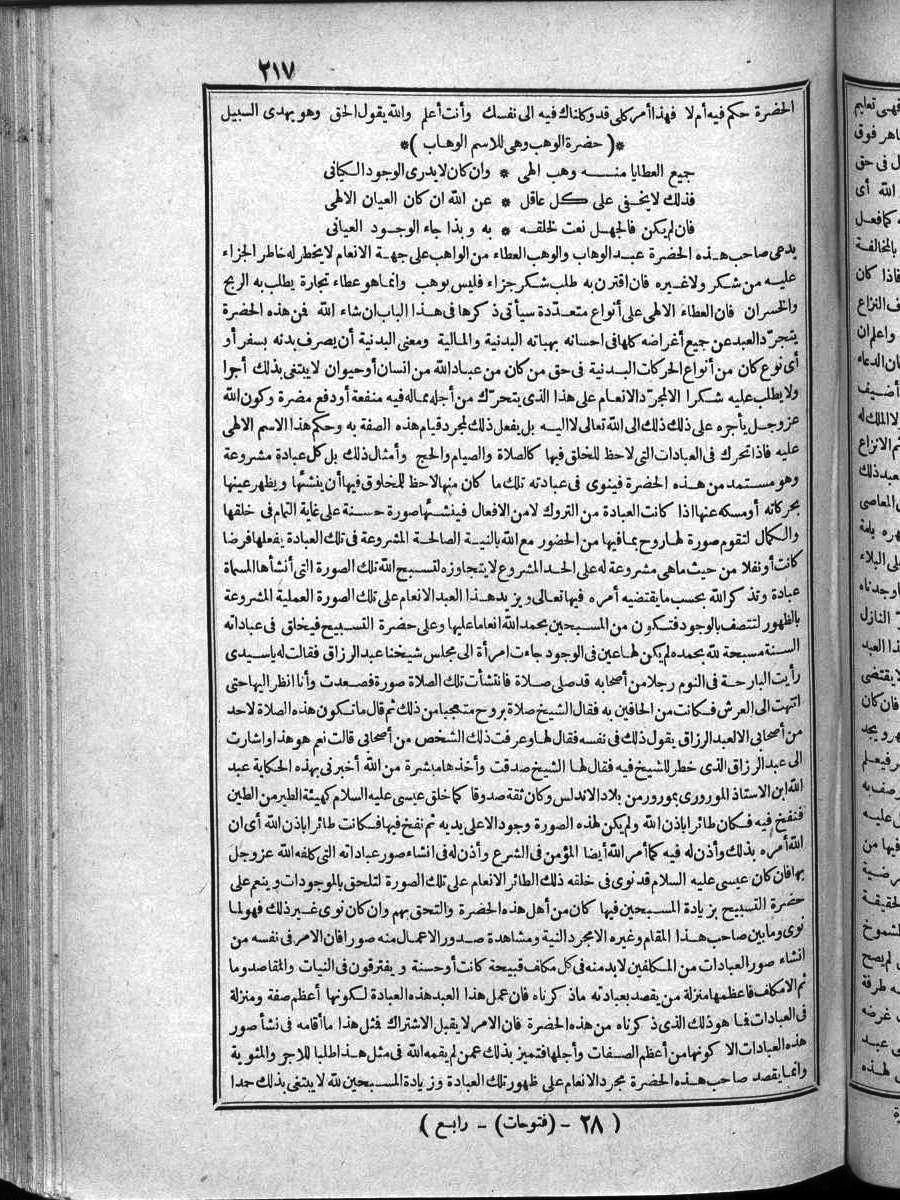 ٢١٧
الحضرة حكم فيه أم لا فهذا أمر كلى قد وكلناك فيه الى نفسك وأنت أعلم والله يقول الحق وهو يهدى السبيل
*( حضرة الوهب وهى للاسم الوهاب )*
جميع العطايا منه وهب الهى * وان كان لا يدرى الوجود الكيانى
فذلك لا يخفى على كل عاقل * عن الله ان كان العيان الالهى
فان لم يكن فالجهل نعت لخلقه * به وبذا جاء الوجود العيانى
يدعى صاحب هذه الحضرة عبد الوهاب والوهب العطاء من الواهب على جهة الانعام لا يخطر له خاطر الجزاء
عليه من شكر ولا غيره فان اقترن به طلب شكر جزاء فليس بوهب وانما هو عطاء تجارة يطلب به الربح
والخسران فان العطاء الالهى على أنواع متعدّدة سيأتى ذكرها فى هذا الباب ان شاء الله فمن هذه الحضرة
يتجرّد العبد عن جميع أغراضه كلها فى احسانه بهباته البدنية والمالية ومعنى البدنية أن يصرف بدنه بسفر أو
أى نوع كان من أنواع الحركات البدنية فى حق من كان من عباد الله من انسان أو حيوان لا يبتغى بذلك أجرا
ولا يطلب عليه شكرا الا لمجرّد الانعام على هذا الذى يتحرّك من أجله مما له فيه منفعة أو دفع مضرة وكون الله
عز وجل يأجره على ذلك ذلك الى الله تعالى لا اليه بل يفعل ذلك لمجرد قيام هذه الصفة به وحكم هذا الاسم الالهى
عليه فاذا تحرك فى العبادات التى لاحظ للخلق فيها كالصلاة والصيام والحج وأمثال ذلك بل كل عبادة مشروعة
وهو مستمد من هذه الحضرة فينوى فى عبادته تلك ما كان منها لاحظ للمخلوق فيها أن ينشئها ويظهر عينها
بحركاته أو مسكه عنها اذا كانت العبادة من التروك لا من الافعال فينشئها صورة حسنة على غاية التمام فى خلقها
والكمال لتقوم صورة لها روح بما فيها من الحضور مع الله بالنية الصالحة المشروعة فى تلك العبادة يفعلها فرضا
كانت أو نفلا من حيث ما هى مشروعة له على الحد المشروع لا يتجاوزه لتسبح الله تلك الصورة التى أنشأها المسماة
عبادة وتذكر الله بحسب ما يقتضيه أمره فيها تعالى ويزيد هذا العبد الانعام على تلك الصورة العملية المشروعة
بالظهور لتتصف بالوجود فتكون من المسبحين بحمد الله انعاما عليها وعلى حضرة التسبيح فيخلق فى عباداته
ألسنة مسبحة لله بحمده لم يكن لها عين فى الوجود جاءت امرأة الى مجلس شيخنا عبد الرزاق فقالت له يا سيدى
رأيت البارحة فى النوم رجلا من أصحابك قد صلى صلاة فانتشأت تلك الصلاة صورة فصعدت وأنا انظر اليها حتى
انتهت الى العرش فكانت من الحافين به فقال الشيخ صلاة بروح متعجبا من ذلك ثم قال ما تكون هذه الصلاة لاحد
من أصحابى الا لعبد الرزاق يقول ذلك فى نفسه فقال لها وعرفت ذلك الشخص من أصحابى قالت نعم هو هذا وأشارت
الى عبد الرزاق الذى خطر للشيخ فيه فقال لها الشيخ صدقت وأخذها مبشرة من الله أخبرنى بهذه الحكاية عبد
الله ابن الاستاذ الموروری بمورور من بلاد الاندلس وكان ثقة صدوقا كما خلق عيسى عليه السلام كهيئة الطير من الطين
فنفخ فيه فكان طائرا باذن الله ولم يكن لهذه الصورة وجود الا على يديه ثم نفخ فيها فكانت طائرا باذن الله أى ان
الله أمره بذلك وأذن له فيه كما أمر الله أيضا المؤمن فى الشرع وأذن له فى انشاء صور عباداته التى كلفه الله عز وجل
بها فان كان عيسى عليه السلام قد نوى فى خلقه ذلك الطائر الانعام على تلك الصورة لتلحق بالموجودات وينعم على
حضرة التسبيح بزيادة المسبحين فيها كان من أهل هذه الحضرة والتحق بهم وان كان نوى غير ذلك فهو لما
نوى وما بين صاحب هذا المقام وغيره الا مجرد النية ومشاهدة صدور الاعمال منه صور افان الامر فى نفسه من
انشاء صور العبادات من المكلفين لا بد منه فى كل مكلف قبيحة كانت أو حسنة ويفترقون فى النيات والمقاصد وما
ثم الا مكلف فأعظمها منزلة من يقصد بعبادته ما ذكرناه فان عمل هذا العبد هذه العبادة لكونها أعظم صفة ومنزلة
فى العبادات فما هو ذلك الذى ذكرناه من هذه الحضرة فان الامر لا يقبل الاشتراك فمثل هذا ما أقامه فى نشأ صور
هذه العبادات الا كونها من أعظم الصفات وأجلها فتميز بذلك عمن لم يقمه الله فى مثل هذا طلبا للاجر والمثوبة
وانما يقصد صاحب هذه الحضرة مجرد الانعام على ظهور تلك العبادة وزيادة المسبحين لله لا يبتغى بذلك حمدا
( ٢٨ - (فتوحات) - رابع )